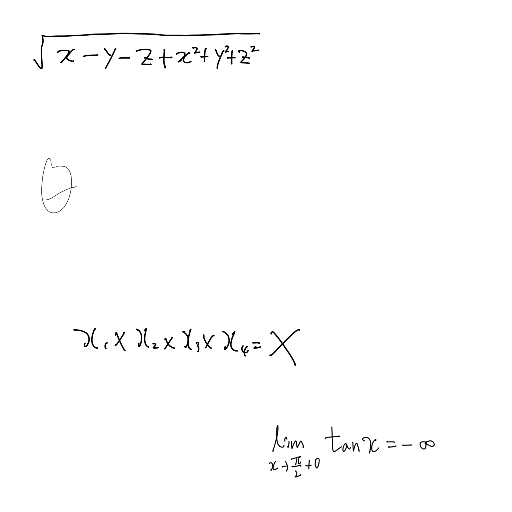 √(x - y - z + x² + y² + z²)
θ
x₁ × x₂ × x₃ × x₄ = X
lim_{x→π/2+0} tan x = -∞